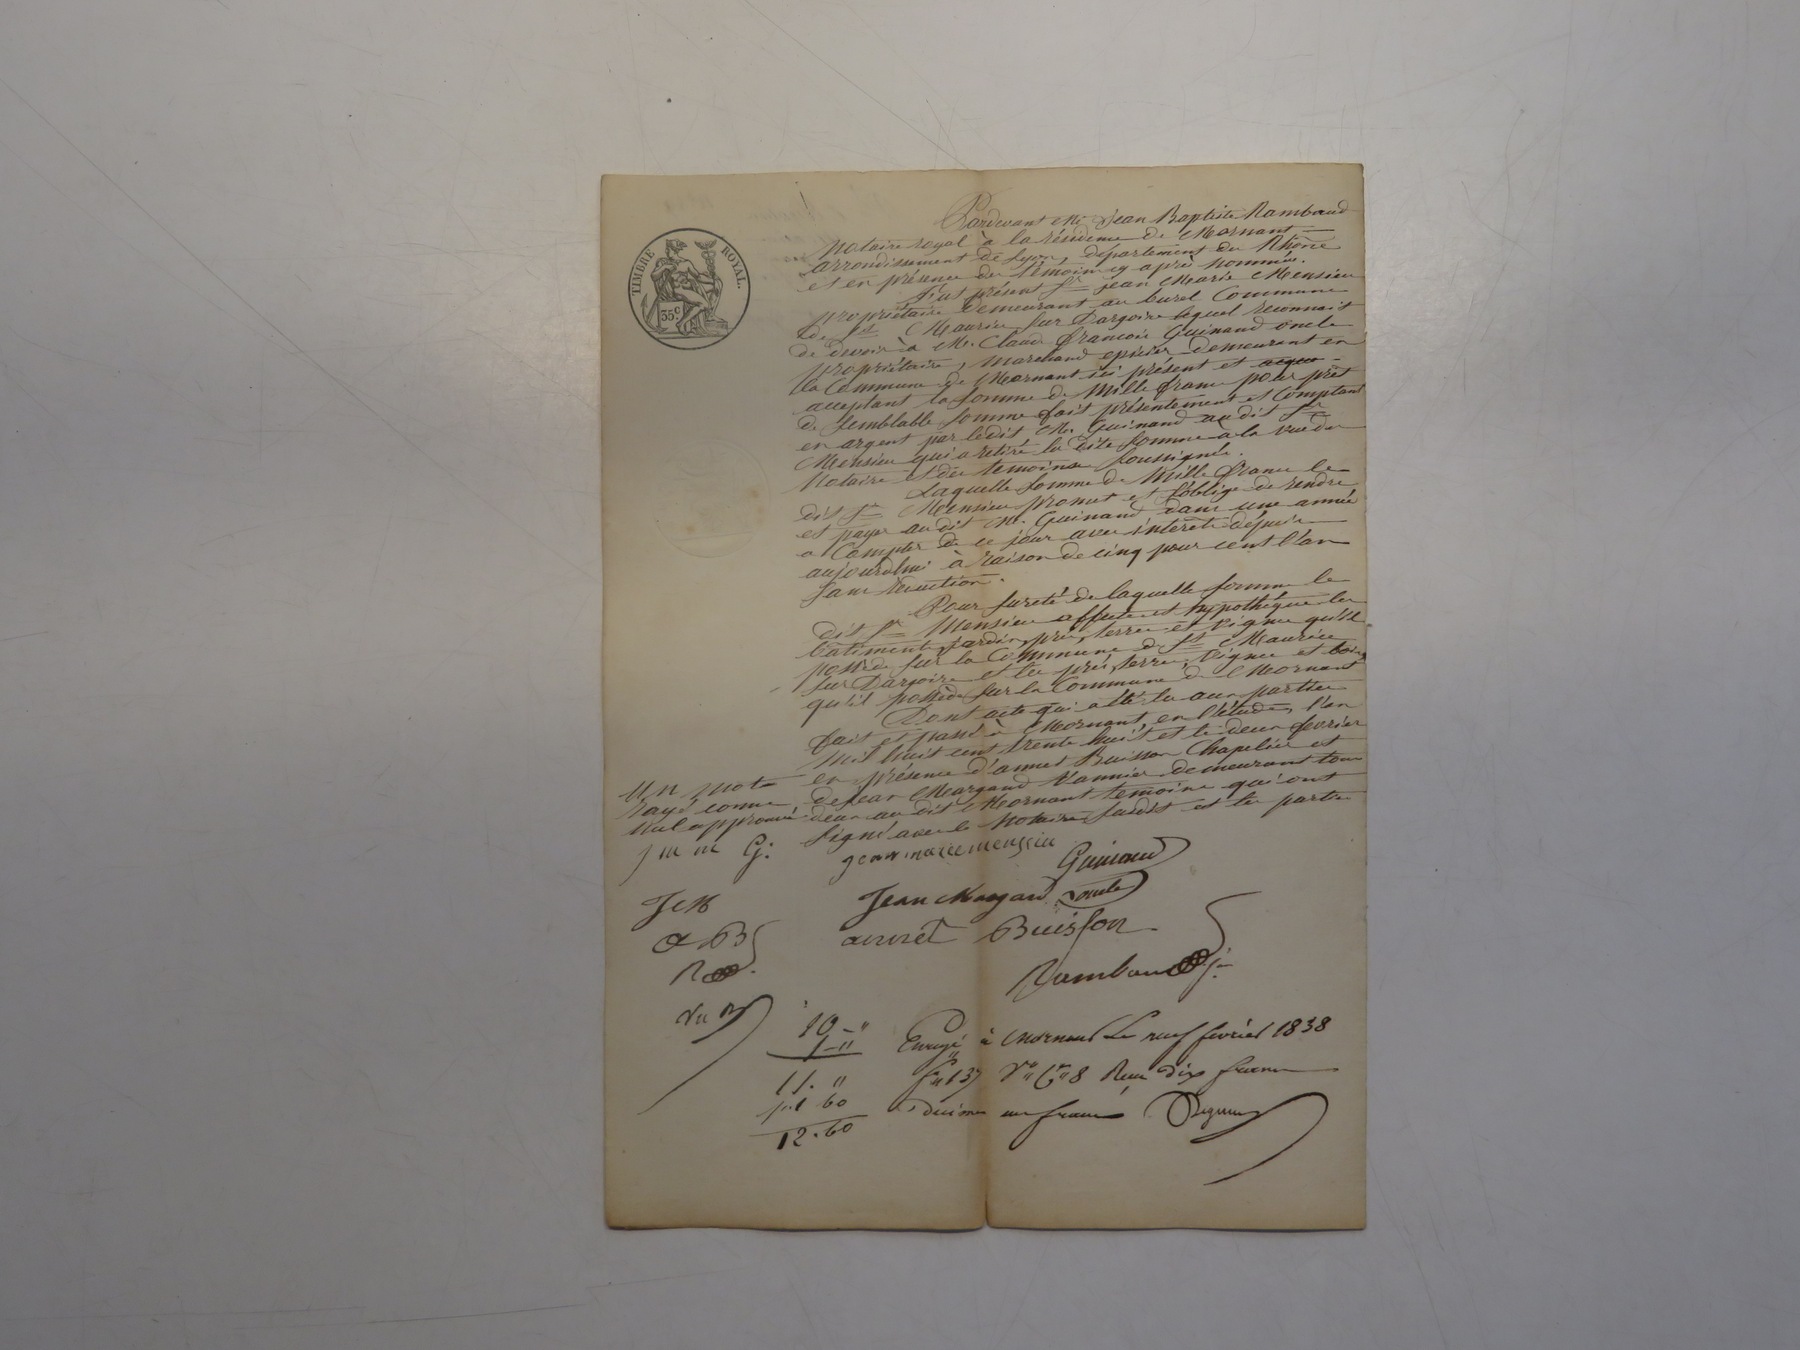 TIMBRE ROYAL.
35 c
Pardevant Me Jean Baptiste Rambaud
Notaire royal à la résidence de Mornant
arrondissement de Lyon, département du Rhône
et en présence des témoins cy après nommés.
Fut présent Sr Jean Marie Mensieu
propriétaire demeurant au burel Commune
de St Maurice sur Dargoire lequel reconnait
de devoir à M. Claude françois Guinand oncle
propriétaire, marchand epicier demeurant en
la Commune de Mornant ici présent et
acceptant la somme de Mille francs pour prêt
de semblable somme fait présentement et Comptant
en argent par ledit M. Guinand au dit Sr
Mensieu qui a retiré la dite somme à la vue du
Notaire et des temoins soussignés.
Laquelle somme de Mille francs le
dit Sr Mensieu promet et s'oblige de rendre
et payer au dit M. Guinand dans une année
a Compter de ce jour avec intérêts depuis
aujourdhui à raison de cinq pour cent l'an
sans retention.
Pour sureté de laquelle somme le
dit Sr Mensieu affecte et hypothèque les
batiments, jardin, prés, terres et vignes qu'il
possède sur la Commune de St Maurice
sur Dargoire et les prés, terres, vignes et bois
qu'il possède sur la Commune de Mornant
Dont acte qui a été lu aux parties
fait et passé à Mornant, en l'étude, l'an
mil huit cent trente huit et le deux fevrier
en présence d'annet Buisson Chapelier et
de Jean Margand Vannier demeurant tous
deux au dit Mornant temoins qui ont
signé avec le Notaire susdit et les parties
Un mot
rayé comme
nul approuvé
J m m G.
jean marie mensieu
Guinand
oncle
J M
Jean Margand
a B
annet Buisson
R
Rambaud
10 - "
1 - "
11. "
1. 60
12. 60
Enregé à Mornant Le neuf fevrier 1838
fo 137 Vo Ce 8 Reçu dix francs
décime un franc